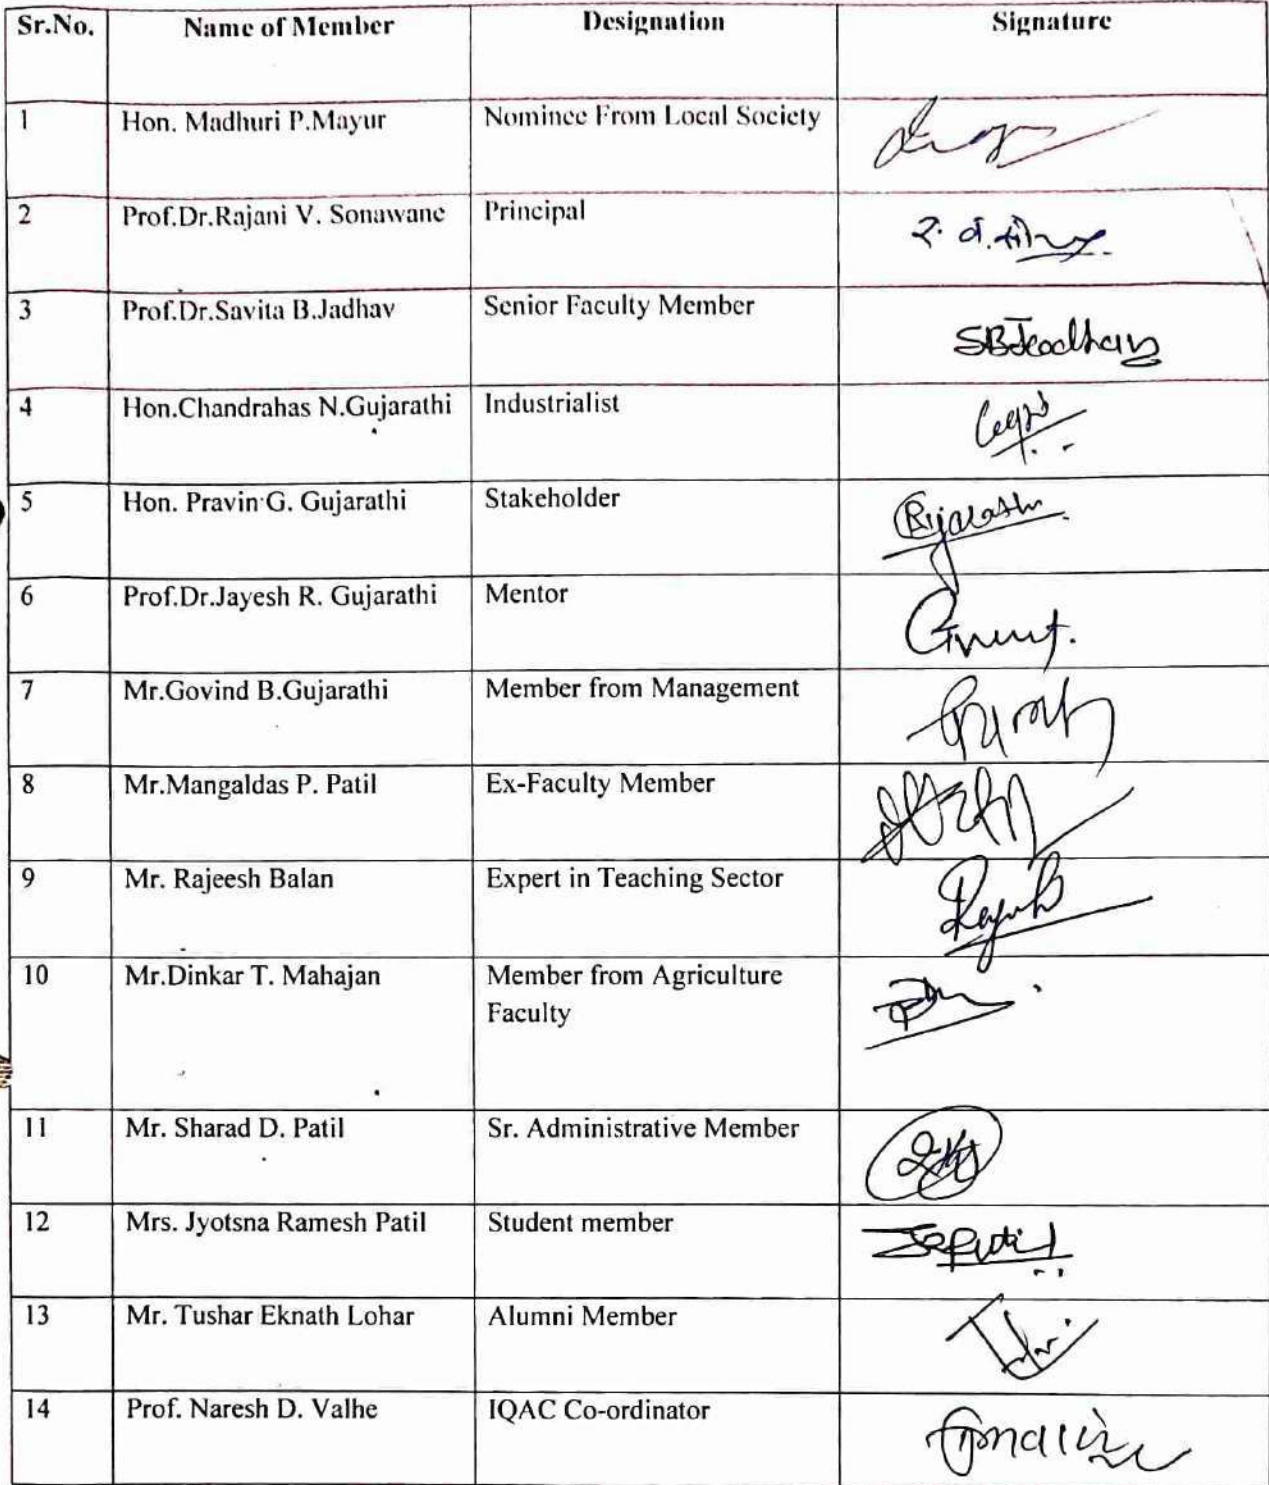 Sr.No. Name of Member Designation Signature
1 Hon. Madhuri P.Mayur Nominee From Local Society
2 Prof.Dr.Rajani V. Sonawane Principal
3 Prof.Dr.Savita B.Jadhav Senior Faculty Member SBJadhav
4 Hon.Chandrahas N.Gujarathi Industrialist
5 Hon. Pravin G. Gujarathi Stakeholder
6 Prof.Dr.Jayesh R. Gujarathi Mentor
7 Mr.Govind B.Gujarathi Member from Management
8 Mr.Mangaldas P. Patil Ex-Faculty Member
9 Mr. Rajeesh Balan Expert in Teaching Sector
10 Mr.Dinkar T. Mahajan Member from Agriculture
Faculty
11 Mr. Sharad D. Patil Sr. Administrative Member
12 Mrs. Jyotsna Ramesh Patil Student member
13 Mr. Tushar Eknath Lohar Alumni Member
14 Prof. Naresh D. Valhe IQAC Co-ordinator